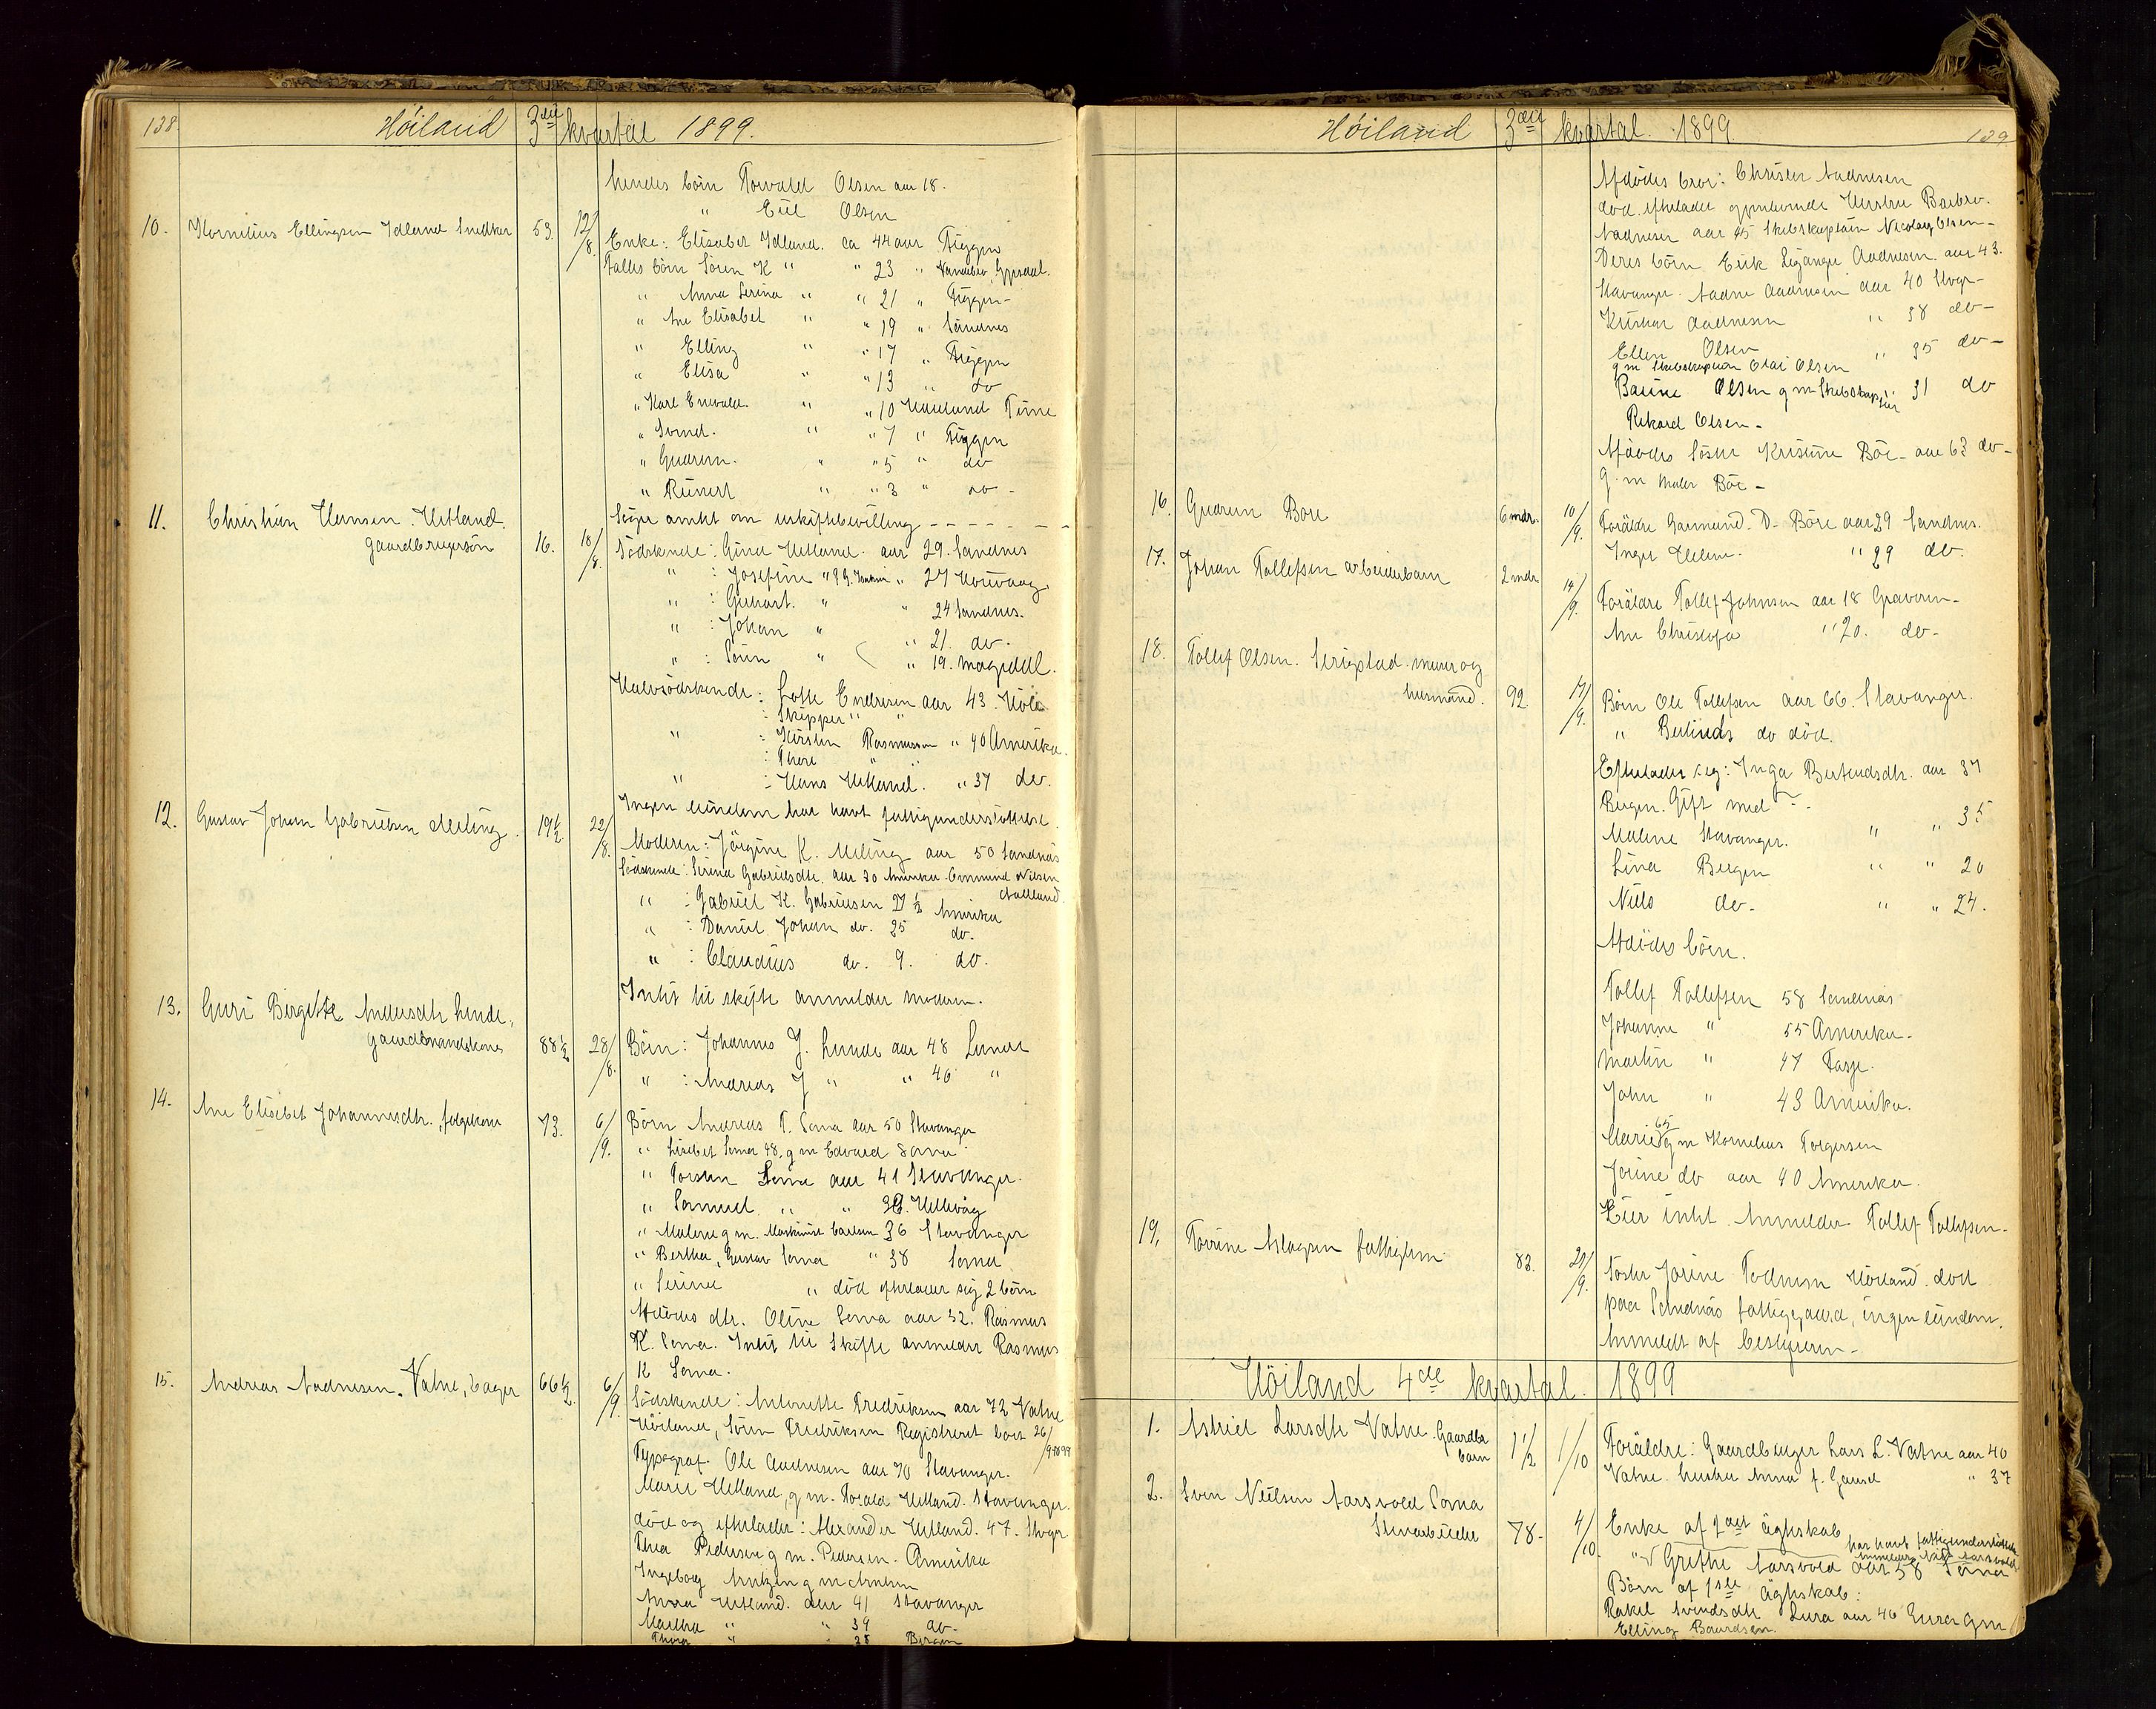 138 Höiland 3die kvartal 1899.
hendes börn Torvald Olsen aar 18.
" Eiel Olsen
10. Kornilius Ellingsen Idland Snedker 53. 12/8. Enke: Elisabet Idland. ca 44 aar Figgen
Fælles börn Sören K " " 23 "
" Anna Serina " " 21 " Figgen
" Ane Elisabet " " 19 " Sandnes
" Elling " " 17 " Figgen
" Elisa " " 13 " do
" Karl Enevald. " " 10 Time
" Svend. " " 7 " Figgen
" Gudrun. " " 5 " do
" Reinert " " 3 " do -
Söger amtet om uskiftebevilling - - - - - -
11. Christian Hansen Hetland.
gaardbrugersön 16. 18/8. Södskende: Gina Hetland. aar 29. Sandnes
" : Josefine " 27
" : Gerhart. " " 24 Sandnes.
" : Johan " " 21. do.
" : Sören " " 19.
Halvsödskende: Lotte Endresen aar 43. Höle
: Skipper " "
" : Kirsten Rasmussen " 40 Amerika.
: Thore " "
" : Hans Hetland. " 37 do.
Ingen eiendom har havt fattigunderstöttelse.
12. Gustav Johan Gabrielsen Meling. 19 1/2 22/8. Moderen: Jörgine K. Meling aar 50 Sandnäs
Södskende: Serina Gabrielsdtr. aar 30 Amerika Ommund Nilsen
" : Gabriel K. Gabrielsen 27 1/2 Amerika
" : Daniel Johan do. 25 do.
" : Claudius do. 9. do.
Intet til skifte anmelder moderen.
13. Guri Birgitte Andersdtr Lunde,
gaardmandskone 88 1/2 28/8. Börn: Johannes J. Lunde aar 48 Lunde
" : Andreas J " " 46 "
14. Ane Elisabet Johannesdtr. folgekone 73. 6/9. Börn Andreas T. Soma aar 50 Stavanger
" Lisebet Soma 48, g m Edvard Soma
" Torsten Soma aar 41 Stavanger.
" Samuel " " 39. Hillevåg
" Malene g m. 36 Stavanger
" Bertha, Gustav Soma " 38 Soma
" Serina " död efterlader sig 2 börn
Afdödes dtr. Oline Soma aar 32. Rasmus
K. Soma. Intet til Skifte anmelder Rasmus
K Soma.
15. Andreas Aadnesen. Vatne, bager 66 1/2 6/9. Södskende: Antonette Fredriksen aar 72 Vatne
Höiland, Sören Fredriksen Registreret boet 26/9 1899
Typograf. Ole Aadnesen aar 70 Stavanger.
Maren Hetland, g m. Hetland. Stavanger.
död og efterlader: Alexander Hetland. 47. Stvgr
Thea Pedersen g m. Pedersen. Amerika
Ingeborg g m
Anna Hetland. aar 41 Stavanger
Martha " " 39 do-
Thora " " 35 Bergen
Höiland 3die kvartal. 1899. 139
Afdödes bror: Christen Aadnesen
död. efterlader gjenlevende Hustru Barbro.
Aadnesen aar Skibskaptain Nicolay Olsen-
Deres börn Erik Aadnesen aar 43.
Stavanger. Aadne Aadnesen aar 40 Stvgr-
Kristian Aadnesen " 38 do-
Ellen Olsen " 35 do-
g m Skibskaptein Olai Olsen
Olsen g m Skibskaptein " 31 do
Rikard Olsen-
Afdödes Söster Kristine Böe- aar 63 do-
g. m Maler Böe-
16. Gudrun Bore 6 mdr. 10/9. Foräldre Gaamund. D. Böre aar 29 Sandnes.
Inger Helene. " 29 do.
17. Johan Tollefsen arbeiderbarn 2 mdr 14/9. Foräldre Tollef Johnsen aar 18 Graveren-
Ane Christofa " 20. do-
18. Tollef Olsen. Serigstad. murer og
husmand. 92 17/9. Börn Ole Tollefsen aar 66. Stavanger.
" Berlinds do död.
Efterlader seg: Inga Bertendsdtr. aar 37
Bergen. Gift med - .
Malene Stavanger. " " 35
Lina Bergen " " 20
Niels do. " " 24.
Afdödes börn.
Tollef Tollefsen 58 Sandnäs
Johanne " 55 Amerika.
Martin " 47
John " 43 Amerika.
Marie 65 g m Kornelius Torgersen
Jorine do aar 40 Amerika.
Eier intet. Anmelder Tollef Tollefsen-
19. Torrine Aslagsen fattiglem 83. 29/9. Söster Jorine Höiland. död
paa Sandnäs fattiggaard, ingen eiendom.
Anmeldt af bestyreren-
Höiland 4de kvartal. 1899
1. Astrid Larsdtr Vatne. Gaardbr
barn 1 1/2 1/10 Foräldre: Gaardbruger Lars L. Vatne aar 40
Vatne hustru Anna f. Gausel " 37
2. Sven Neilsen Aarsvold Soma
78- 4/10. Enke af 2det ägteskab
har havt fattigunderstöttelse
anmelder Nils Aarsvold
" Grethe Aarsvold aar 58 Soma
Börn af 1ste ägteskab:
Rakel Svendsdtr Lura aar 46 Lura g m
Elling Baardsen.